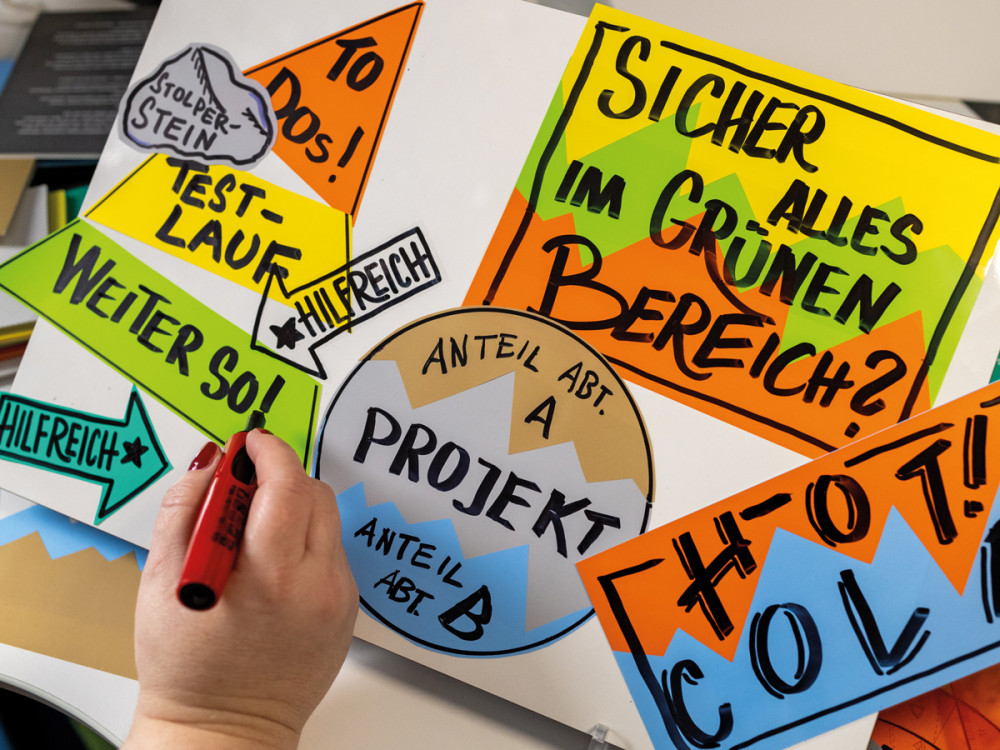 TO
DOs!
STOLPER-
STEIN
TEST-
LAUF
WEITER SO!
HILFREICH
HILFREICH
SICHER
ALLES
IM GRÜNEN
BEREICH?
ANTEIL ABT.
A
PROJEKT
ANTEIL
ABT. B
HOT!
COL